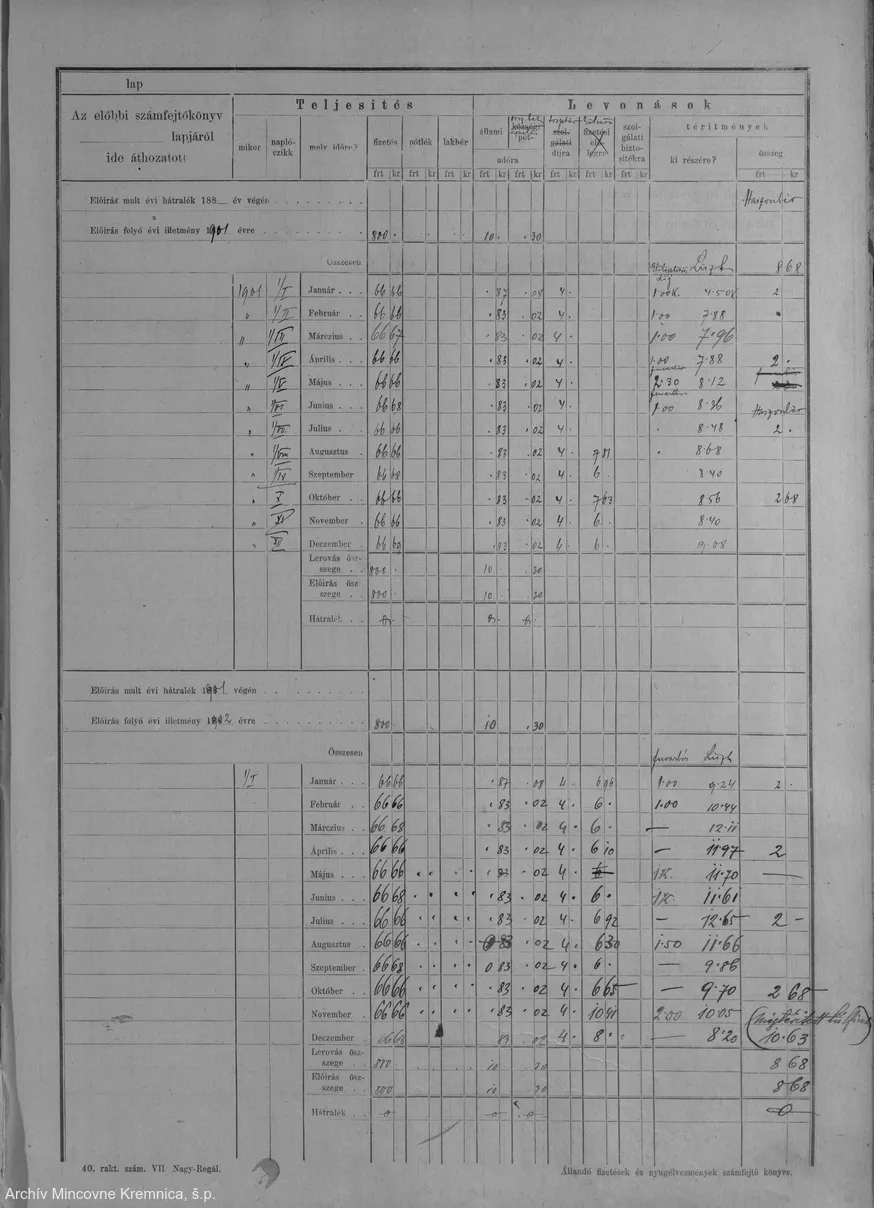 lap
Az előbbi számfejtőkönyv
lapjáról
ide áthozatott
Teljesítés
Levonások
mikor
napló-
czikk
mely időre?
fizetés
pótlék
lakbér
állami
pót-
adóra
szol-
gálati
díjra
fizetési
szol-
gálati
bizto-
sítékra
térítmények
ki részére?
összeg
frt kr frt kr frt kr frt kr frt kr frt kr frt kr frt kr frt kr
Előirás mult évi hátralék 188 év végén
Előirás folyó évi illetmény 1901 évre 800 · 10 · · 30
Összesen 8 68
1901 1/I Január 66 66 · 87 · 08 4 · 1·00K. 4·508 2
" 1/II Február 66 66 · 83 · 02 4 · 1·00 7·88
" 1/III Márczius 66 67 · 83 · 02 4 · 1·00 7·96
" 1/IV Április 66 66 · 83 · 02 4 · 1·00 7·88 2 ·
" 1/V Május 66 66 · 83 · 02 4 · 2·30 8·12
" 1/VI Junius 66 68 · 83 · 02 4 · 1·00 8·36
" 1/VII Julius 66 66 · 83 · 02 4 · 8·48 2 ·
" 1/VIII Augusztus 66 66 · 83 · 02 4 · 7 81 8·68
" 1/IX Szeptember 66 68 · 83 · 02 4 · 6 · 8·40
" X Október 66 66 · 83 · 02 4 · 7 63 8·56 2 68
" XI November 66 66 · 83 · 02 4 · 6 · 8·40
" XII Deczember 66 69 · 83 · 02 6 · 9·08
Lerovás ösz-
szege 800 · 10 · 30
Előirás ösz
szege 800 · 10 · 30
Hátralék
Előirás mult évi hátralék 1901 végén
Előirás folyó évi illetmény 1902 évre 800 · 10 · 30
Összesen
1/I Január 66 66 · 87 · 08 4 · 6 96 1·00 9·24 2 ·
Február 66 66 · 83 · 02 4 · 6 · 1·00 10·44
Márczius 66 68 · 83 · 02 4 · 6 · — 12·11
Április 66 66 · 83 · 02 4 · 6 10 — 11·97 2
Május 66 66 · 83 · 02 4 · 1K. 11·70 —
Junius 66 68 · 83 · 02 4 · 6 · 1K. 11·61
Julius 66 66 · 83 · 02 4 · 6 92 — 12·65 2 —
Augusztus 66 66 83 · 02 4 · 6 30 1·50 11·66
Szeptember 66 68 0 83 · 02 4 · 6 · — 9·86
Október 66 66 · 83 · 02 4 · 6 65 — 9·70 2 68
November 66 66 · 83 · 02 4 · 10 41 2·00 10·05
Deczember 66 68 83 · 02 4 · 8 · — 8·20 10·63
Lerovás ösz-
szege 800 10 30 8 68
Előirás ösz-
szege 800 10 30 8 68
Hátralék 0 0 0 0
40. rakt. szám. VII. Nagy-Regál.
Állandó fizetések és nyugélvezmények számfejtő könyve.
Archív Mincovne Kremnica, š.p.